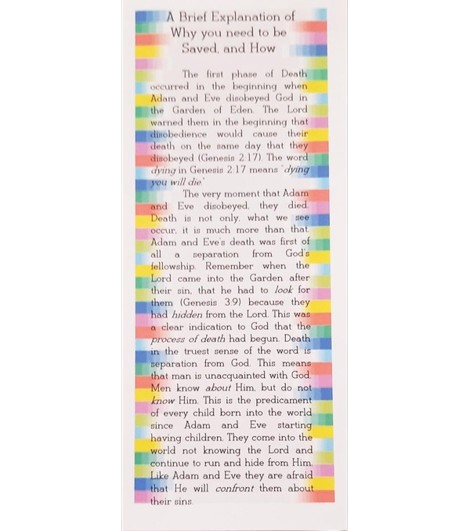 A Brief Explanation of
Why you need to be
Saved, and How
The first phase of Death
occurred in the beginning when
Adam and Eve disobeyed God in
the Garden of Eden. The Lord
warned them in the beginning that
disobedience would cause their
death on the same day that they
disobeyed (Genesis 2:17). The word
dying in Genesis 2:17 means "dying
you will die"
The very moment that Adam
and Eve disobeyed, they died.
Death is not only, what we see
occur, it is much more than that.
Adam and Eve's death was first of
all a separation from God's
fellowship. Remember when the
Lord came into the Garden after
their sin, that he had to look for
them (Genesis 3:9) because they
had hidden from the Lord. This was
a clear indication to God that the
process of death had begun. Death
in the truest sense of the word is
separation from God. This means
that man is unacquainted with God.
Men know about Him, but do not
know Him. This is the predicament
of every child born into the world
since Adam and Eve starting
having children. They come into the
world not knowing the Lord and
continue to run and hide from Him.
Like Adam and Eve they are afraid
that He will confront them about
their sins.